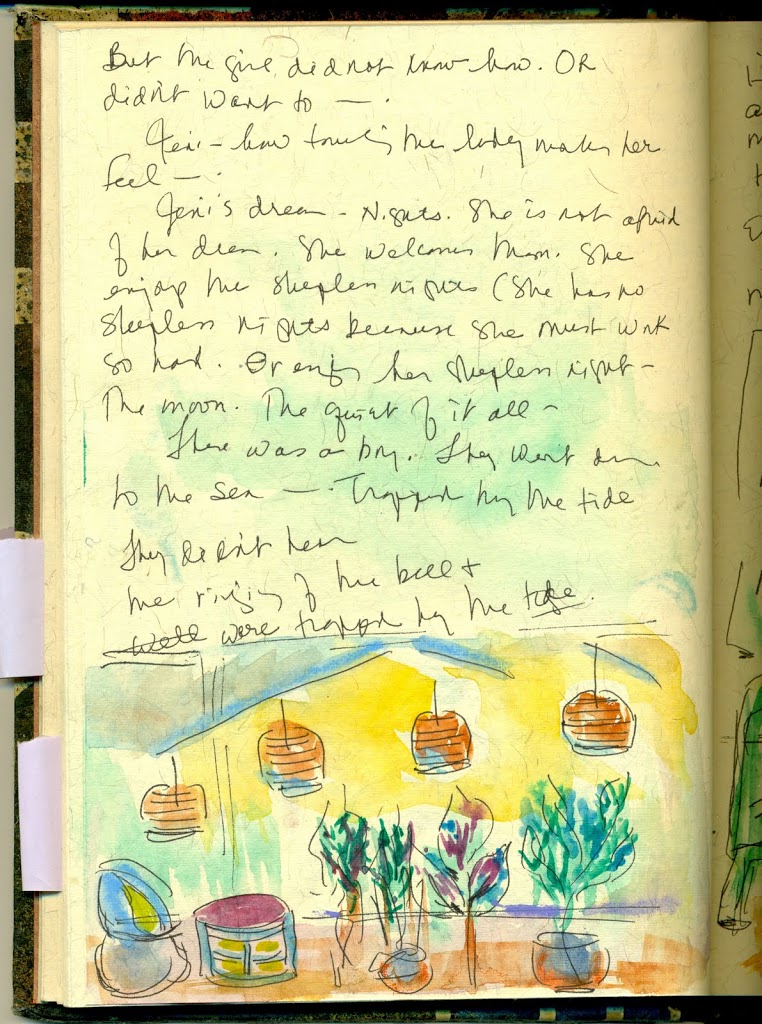 But the girl did not know how. OR
didn't want to —.
Jeni - how touching the lady makes her
feel —.
Jeni's dream - Nights. She is not afraid
of her dream. She welcomes them. She
enjoys the sleepless nights (She has no
sleepless nights because she must work
so hard. Or enjoys her sleepless night -
The moon. The quiet of it all -
There was a boy. They went down
to the sea — Trapped by the tide
They didn't hear
the ringing of the bell &
were trapped by the tide.